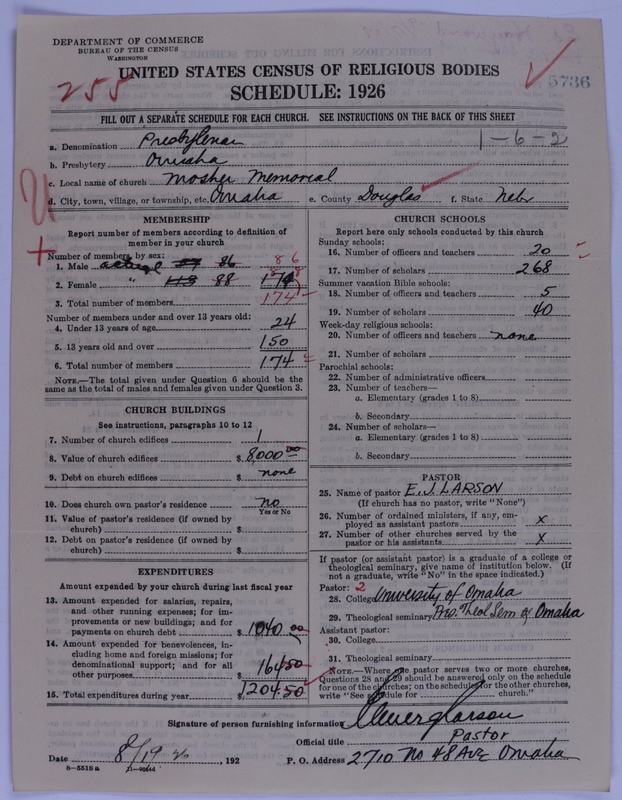 DEPARTMENT OF COMMERCE
BUREAU OF THE CENSUS
WASHINGTON
UNITED STATES CENSUS OF RELIGIOUS BODIES
SCHEDULE: 1926
255
5736
FILL OUT A SEPARATE SCHEDULE FOR EACH CHURCH. SEE INSTRUCTIONS ON THE BACK OF THIS SHEET
1-6-2
a. Denomination Presbyterian
b. Presbytery Omaha
c. Local name of church Mosher Memorial
d. City, town, village, or township, etc. Omaha e. County Douglas f. State Nebr
MEMBERSHIP
Report number of members according to definition of
member in your church
Number of members by sex:
1. Male actual 86 86
2. Female " 113 88 174 88
3. Total number of members 174
Number of members under and over 13 years old:
4. Under 13 years of age 24
5. 13 years old and over 150
6. Total number of members 174
NOTE.—The total given under Question 6 should be
the same as the total of males and females given under Question 3.
CHURCH BUILDINGS
See instructions, paragraphs 10 to 12
7. Number of church edifices 1
8. Value of church edifices $ 8,000 00
9. Debt on church edifices $ none
10. Does church own pastor's residence no
Yes or No
11. Value of pastor's residence (if owned by
church) $
12. Debt on pastor's residence (if owned by
church) $
EXPENDITURES
Amount expended by your church during last fiscal year
13. Amount expended for salaries, repairs,
and other running expenses; for im-
provements or new buildings; and for
payments on church debt $ 1040 00
14. Amount expended for benevolences, in-
cluding home and foreign missions; for
denominational support; and for all
other purposes $ 164 50
15. Total expenditures during year $ 1204.50
CHURCH SCHOOLS
Report here only schools conducted by this church
Sunday schools:
16. Number of officers and teachers 20
17. Number of scholars 268
Summer vacation Bible schools:
18. Number of officers and teachers 5
19. Number of scholars 40
Week-day religious schools:
20. Number of officers and teachers none
21. Number of scholars
Parochial schools:
22. Number of administrative officers
23. Number of teachers—
a. Elementary (grades 1 to 8)
b. Secondary
24. Number of scholars—
a. Elementary (grades 1 to 8)
b. Secondary
PASTOR
25. Name of pastor E. J. LARSON
(If church has no pastor, write "None")
26. Number of ordained ministers, if any, em-
ployed as assistant pastors x
27. Number of other churches served by the
pastor or his assistants x
If pastor (or assistant pastor) is a graduate of a college or
theological seminary, give name of institution below. (If
not a graduate, write "No" in the space indicated.)
Pastor: 2
28. College University of Omaha
29. Theological seminary Pres. Theol Sem of Omaha
Assistant pastor:
30. College
31. Theological seminary
NOTE.—Where one pastor serves two or more churches,
Questions 28 and 29 should be answered only on the schedule
for one of the churches; on the schedules for the other churches,
write "See schedule for church."
Signature of person furnishing information Larson
Official title Pastor
Date 8/19 26, 192 P. O. Address 2710 No 48 Ave Omaha
8—5518a